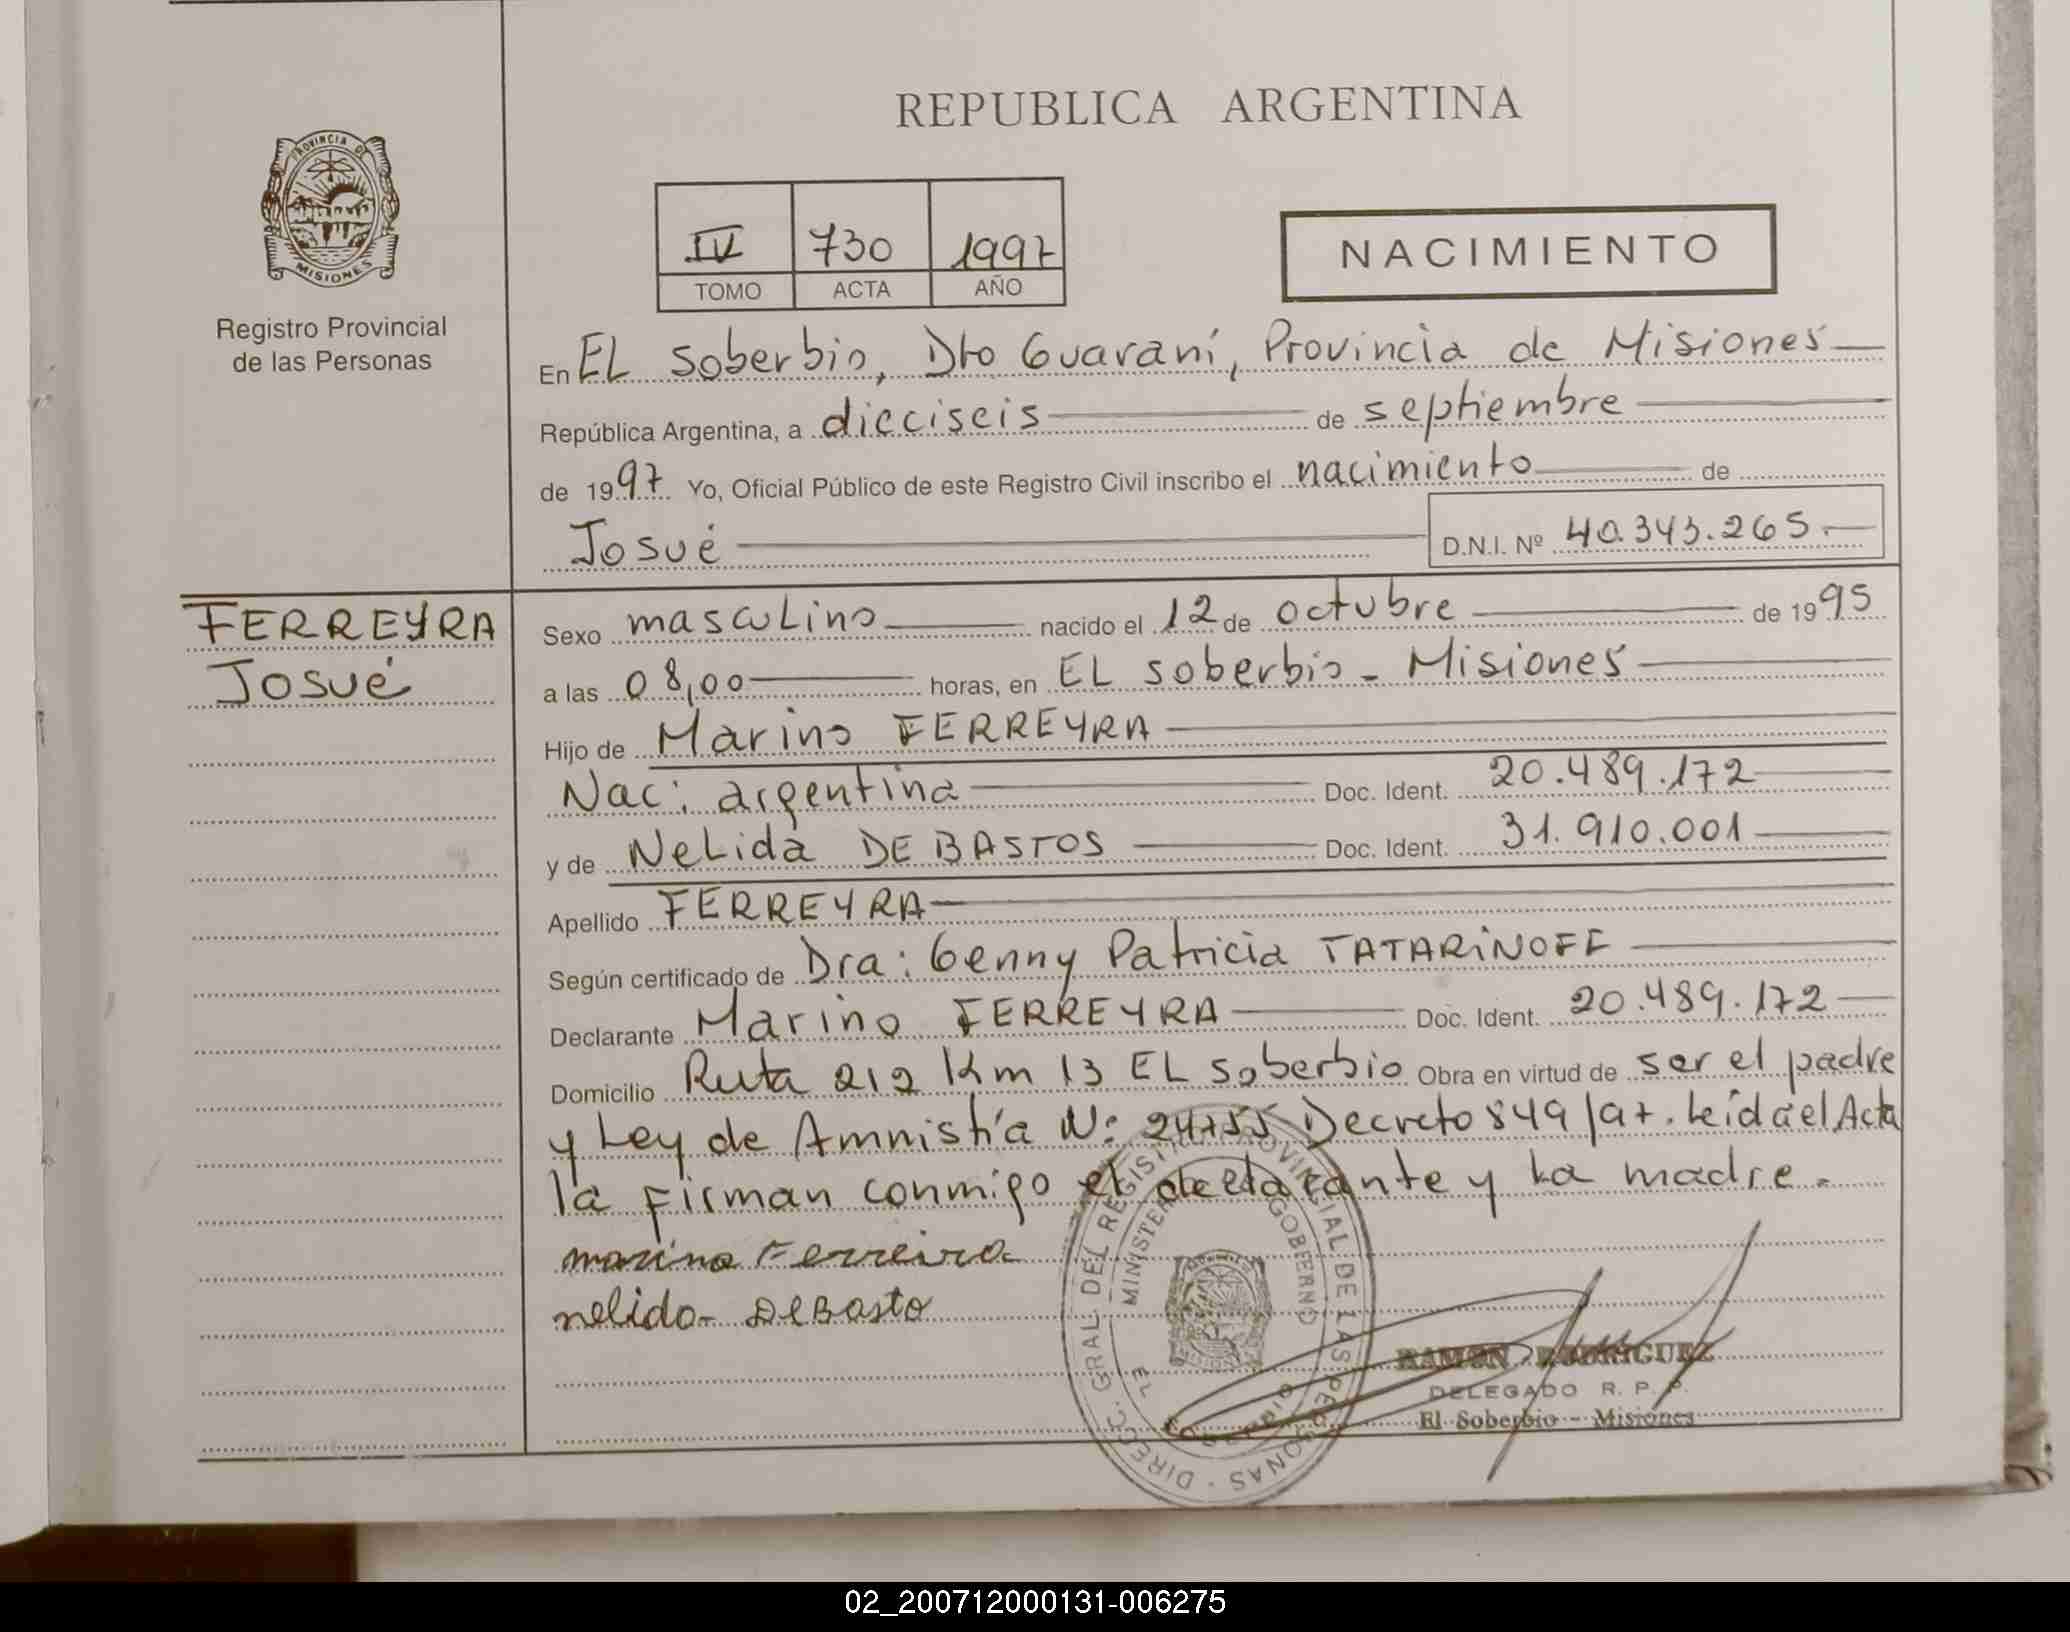 REPUBLICA ARGENTINA
PROVINCIA DE
MISIONES
Registro Provincial
de las Personas
IV 730 1997
TOMO ACTA AÑO
NACIMIENTO
En EL Soberbio, Dto Guaraní, Provincia de Misiones
República Argentina, a dieciseis de septiembre
de 1997 Yo, Oficial Público de este Registro Civil inscribo el nacimiento de
Josué D.N.I. Nº 40.343.265.-
FERREYRA
Josué
Sexo masculino nacido el 12 de octubre de 1995
a las 08,00 horas, en EL Soberbio - Misiones
Hijo de Marino FERREYRA
Nac: argentina Doc. Ident. 20.489.172
y de NeLida DE BASTOS Doc. Ident. 31.910.001
Apellido FERREYRA
Según certificado de Dra: Genny Patricia TATARINOFF
Declarante Marino FERREYRA Doc. Ident. 20.489.172
Domicilio Ruta 212 Km 13 EL Soberbio Obra en virtud de ser el padre
y Ley de Amnistía Nº 24755 Decreto 849/97. Leída el Acta
la firman conmigo el declarante y La madre.
marino Ferreira
nelida DeBasto
DIRECC. GRAL. DEL REGISTRO PROVINCIAL DE LAS PERSONAS
GOBIERNO
RAMON RODRIGUEZ
DELEGADO R. P. P.
El Soberbio - Misiones
02_200712000131-006275